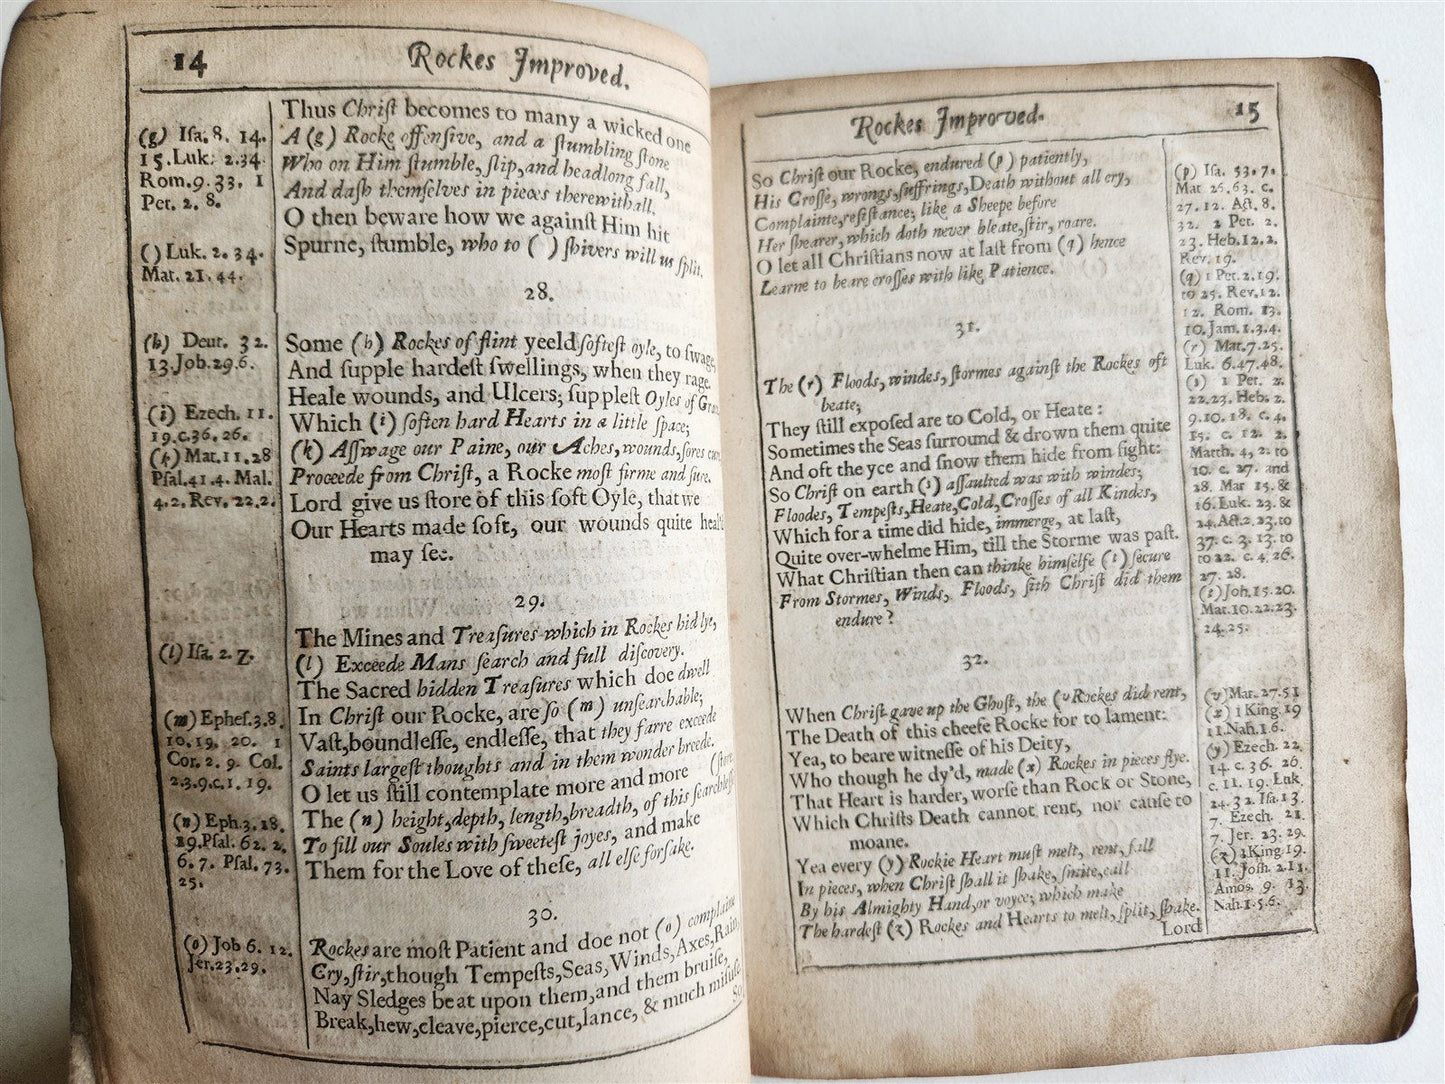 14 Rockes Improved.
(g) Isa. 8. 14.
15. Luk. 2.34
Rom.9.33. 1
Pet. 2. 8.
() Luk. 2. 34.
Mat. 21. 44.
(h) Deut. 32.
13. Job. 29.6.
(i) Ezech. 11.
19.c.36. 26.
(k) Mat. 11.28
Psal.41.4. Mal.
4.2. Rev. 22.2.
(l) Isa. 2. 7.
(m) Ephes.3.8.
10.19. 20. 1
Cor. 2. 9. Col.
2.3.9.c.1. 19.
(n) Eph.3.18.
19.Psal. 62. 2.
6. 7. Psal. 73.
25.
(o) Job 6. 12.
Jer.23.29.
Thus Chriſt becomes to many a wicked one
A (g) Rocke offenſive, and a ſtumbling ſtone
Who on Him ſtumble, ſlip, and headlong fall,
And daſh themſelves in pieces therewithall.
O then beware how we againſt Him hit
Spurne, ſtumble, who to ( ) ſhivers will us ſplit.
28.
Some (h) Rockes of flint yeeld ſofteſt oyle, to ſwage
And ſupple hardeſt ſwellings, when they rage.
Heale wounds, and Ulcers; ſuppleſt Oyles of
Which (i) ſoften hard Hearts in a little ſpace;
(k) Aſſwage our Paine, our Aches, wounds, ſores
Proceede from Chriſt, a Rocke moſt firme and ſure.
Lord give us ſtore of this ſoft Oyle, that we
Our Hearts made ſoft, our wounds quite
may ſee.
29.
The Mines and Treaſures which in Rockes hid lye,
(l) Exceede Mans ſearch and full diſcovery.
The Sacred hidden Treaſures which doe dwell
In Chriſt our Rocke, are ſo (m) unſearchable;
Vaſt, boundleſſe, endleſſe, that they farre exceede
Saints largeſt thoughts and in them wonder breede.
O let us ſtill contemplate more and more (ſtore
The (n) height, depth, length, breadth, of this ſearchleſſe
To fill our Soules with ſweeteſt joyes, and make
Them for the Love of theſe, all elſe forſake.
30.
Rockes are moſt Patient and doe not (o) complaine
Cry, ſtir, though Tempeſts, Seas, Winds, Axes, Rain,
Nay Sledges beat upon them, and them bruiſe,
Break, hew, cleave, pierce, cut, lance, & much miſuſe
So
Rockes Improved. 15
So Chriſt our Rocke, endured (p) patiently,
His Croſſe, wrongs, ſuffrings, Death without all cry,
Complainte, reſiſtance; like a Sheepe before
Her ſhearer, which doth never bleate, ſtir, roare.
O let all Chriſtians now at laſt from (q) hence
Learne to beare croſſes with like Patience.
31.
The (r) Floods, windes, ſtormes againſt the Rockes oft
beate;
They ſtill expoſed are to Cold, or Heate :
Sometimes the Seas ſurround & drown them quite
And oft the yce and ſnow them hide from ſight:
So Chriſt on earth (s) aſſaulted was with windes;
Floodes, Tempeſts, Heate, Cold, Croſſes of all Kindes,
Which for a time did hide, immerge, at laſt,
Quite over-whelme Him, till the Storme was paſt.
What Chriſtian then can thinke himſelfe (t) ſecure
From Stormes, Winds, Floods, ſith Chriſt did them
endure ?
32.
When Chriſt gave up the Ghoſt, the (v Rockes did rent,
The Death of this cheefe Rocke for to lament:
Yea, to beare witneſſe of his Deity,
Who though he dy'd, made (x) Rockes in pieces flye.
That Heart is harder, worſe than Rock or Stone,
Which Chriſts Death cannot rent, nor cauſe to
moane.
Yea every (y) Rockie Heart muſt melt, rent, fall
In pieces, when Chriſt ſhall it ſhake, ſmite, call
By his Almighty Hand, or voyce; which make
The hardeſt (z) Rockes and Hearts to melt, ſplit, ſhake.
Lord
(p) Isa. 53. 7.
Mat 26.63. c.
27. 12. Act. 8.
32. 2 Pet. 2.
23. Heb.12.2.
Rev. 19.
(q) 1 Pet. 2.19.
to 25. Rev.12.
12. Rom. 13.
10. Jam. 1.3.4.
(r) Mat.7.25.
Luk. 6.47.48.
(s) 1 Pet. 2.
22.23. Heb. 2.
9.10. 18. c. 4.
15. c. 12. 2.
Matth. 4, 2. to
10. c. 27. and
28. Mar 15. &
16. Luk. 23. &
24. Act.2. 23.to
37. c. 3. 13. to
to 22. c. 4. 26.
27. 28.
(t) Joh. 15.20.
Mat.10.22.23.
24.25.
(v) Mat. 27.51
(x) 1 King. 19
11. Nah. 1.6.
(y) Ezech. 22.
14 c. 36. 26.
c. 11. 19. Luk
24. 32. Isa.13.
7. Ezech. 21.
7. Jer. 23. 29.
(z) 1King.19.
11. Josh. 2.11.
Amos. 9. 13.
Nah.1.5.6.